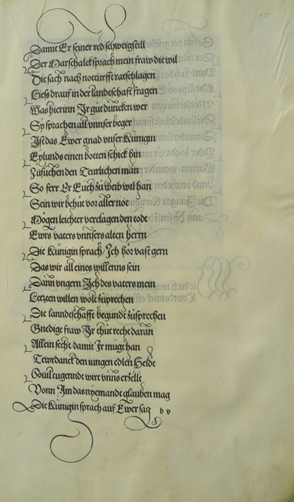 Damit Er seiner red schweig still
Der Marschalck sprach mein fraw die wil
Die sach nach notturfft ratschlagen
Liess drauf in der landschaft fragen
Was hierinn Ir gut duncken wer
Sy sprachen all vnnser beger
Ist das Ewer gnad vnser Künigin
Eylunds einen botten schick hin
Zusuchen den Teurlichen man
So ferr Er Euch zu weib wil han
Sein wir behüt vor aller not
Mögen leichter verclagen den tode
Ewrs vaters vnnsers alten herrn
Die Künigin sprach Ich hör vast gern
Das wir all eines willenns sein
Dann vngern Ich des vaters mein
Letzten willen wolt züprechen
Die lanndschafft begundt züsprechen
Gnedige fraw Ir thüt recht daran
Allein secht damit Ir mugt han
Tewrdanck den iungen edlen Helde
Souil tugenndt wirt vnns erzelt
Vonn Im das nyemandt glauben mag
Die Künigin sprach auf Ewer sag
b v